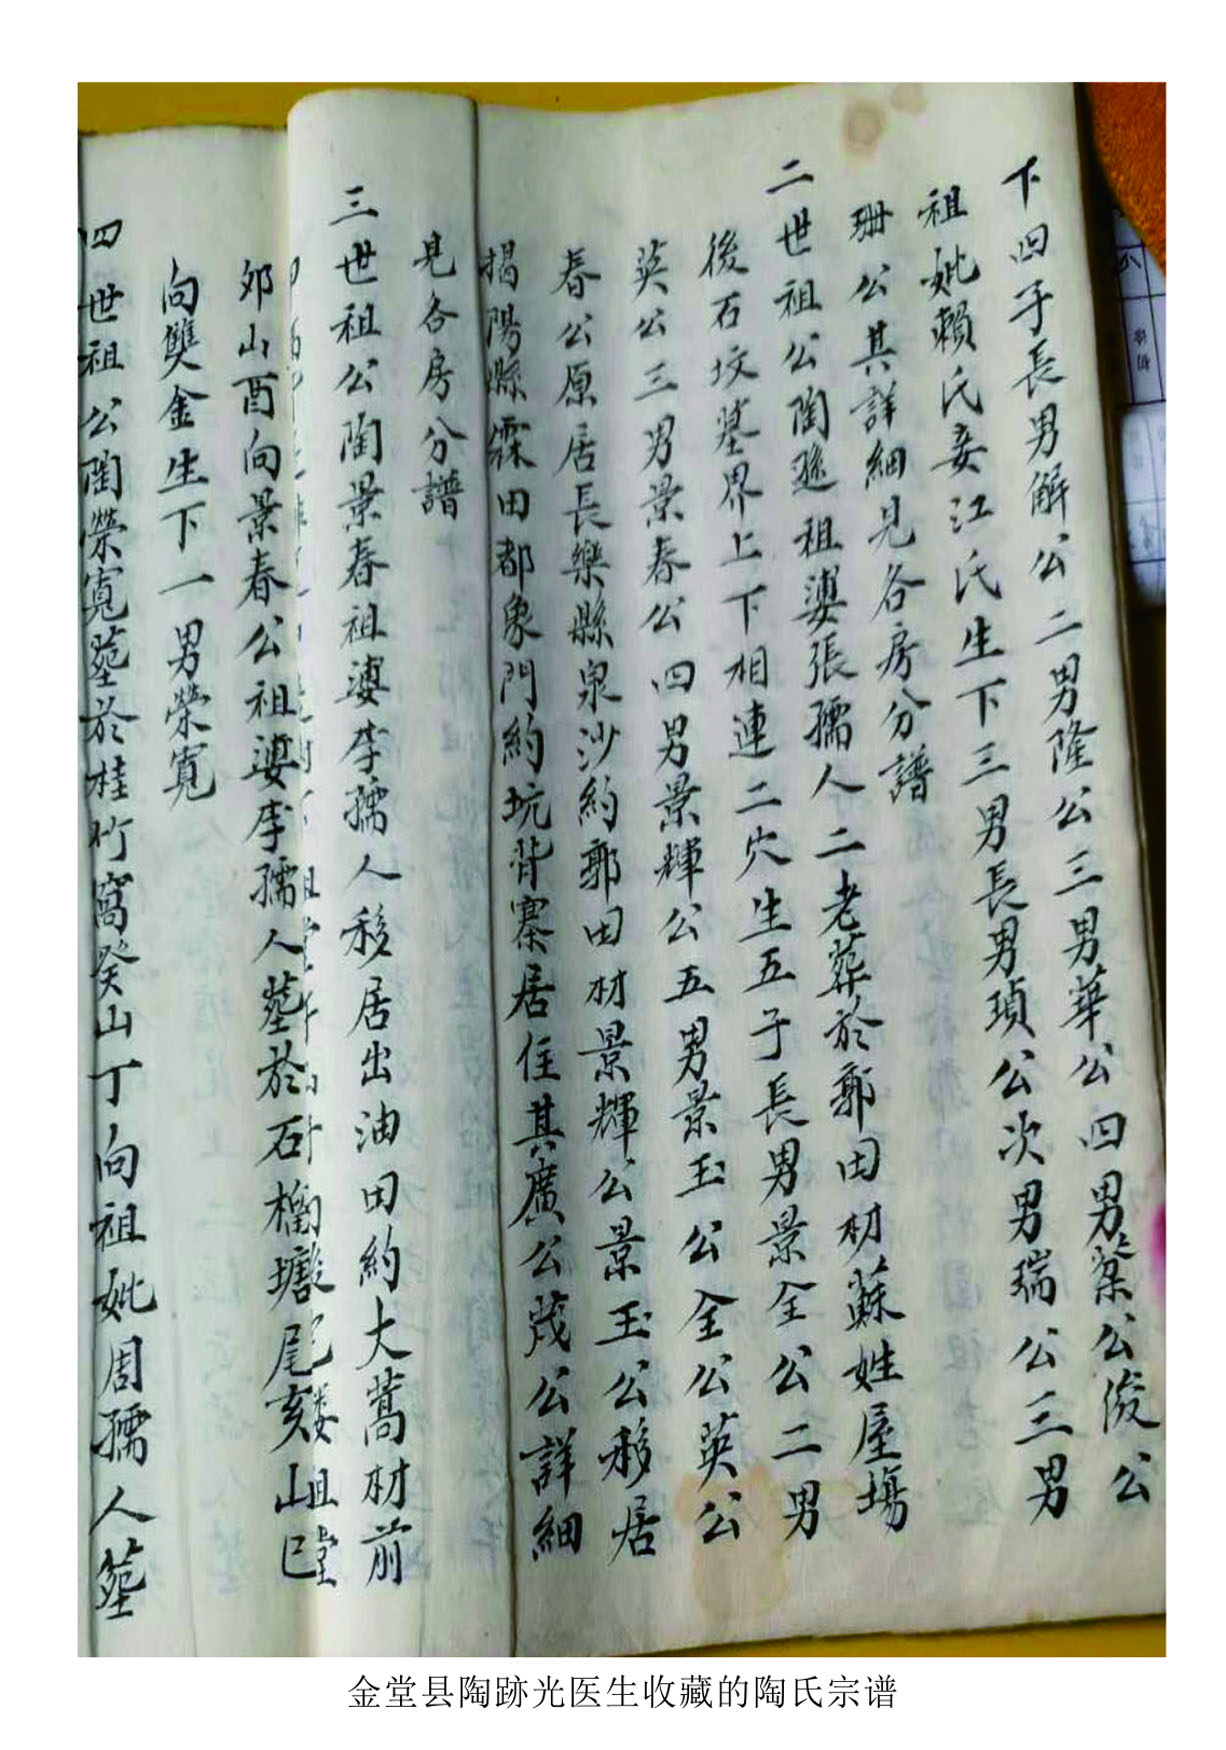 下四子長男解公二男隆公三男華公四男粲公俊公
祖妣賴氏妾江氏生下三男長男瑱公次男瑞公三男
珊公其詳細見各房分譜
二世祖公陶遜祖婆張孺人二老葬於郭田村蘇姓屋塲
後石坟墓界上下相連二穴生五子長男景全公二男
英公三男景春公四男景輝公五男景玉公全公英公
春公原居長樂縣泉沙約郭田村景輝公景玉公移居
揭陽縣霖田都象門約坑背寨居住其廣公茂公詳細
見各房分譜
三世祖公陶景春祖婆李孺人移居出油田約大蒿村前
郊山酉向景春公祖婆李孺人塟於石榴塘尾亥山巳
向雙金生下一男榮寬
四世祖公陶榮寬塟於桂竹窩癸山丁向祖妣周孺人塟
金堂县陶跡光医生收藏的陶氏宗谱